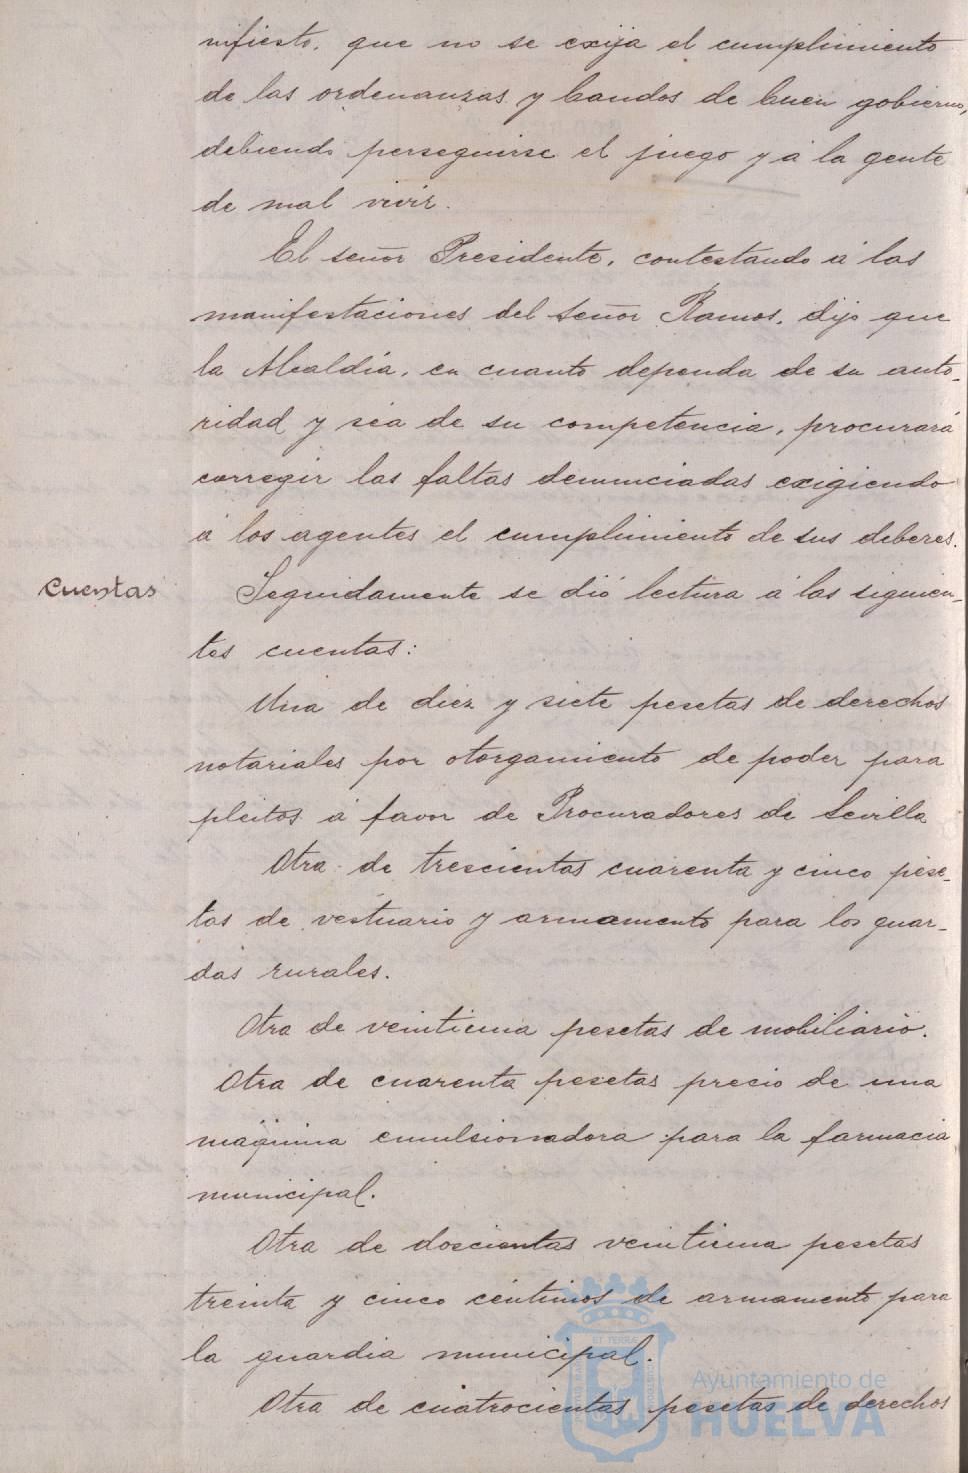 nifiesto, que no se exija el cumplimiento
de las ordenanzas y bandos de buen gobierno,
debiendo perseguirse el juego y á la gente
de mal vivir.
El señor Presidente, contestando á las
manifestaciones del señor Ramos, dijo que
la Alcaldía, en cuanto dependa de su auto-
ridad y sea de su competencia, procurará
corregir las faltas denunciadas exigiendo
á los agentes el cumplimiento de sus deberes.
Cuentas
Seguidamente se dió lectura á las siguien-
tes cuentas:
Una de diez y siete pesetas de derechos
notariales por otorgamiento de poder para
pleitos á favor de Procuradores de Sevilla
Otra de trescientas cuarenta y cinco pese-
tas de vestuario y armamento para los guar-
das rurales.
Otra de veintiuna pesetas de mobiliario.
Otra de cuarenta pesetas precio de una
máquina emulsionadora para la farmacia
municipal.
Otra de doscientas veintiuna pesetas
treinta y cinco céntimos de armamento para
la guardia municipal.
Otra de cuatrocientas pesetas de derechos
Ayuntamiento de
HUELVA